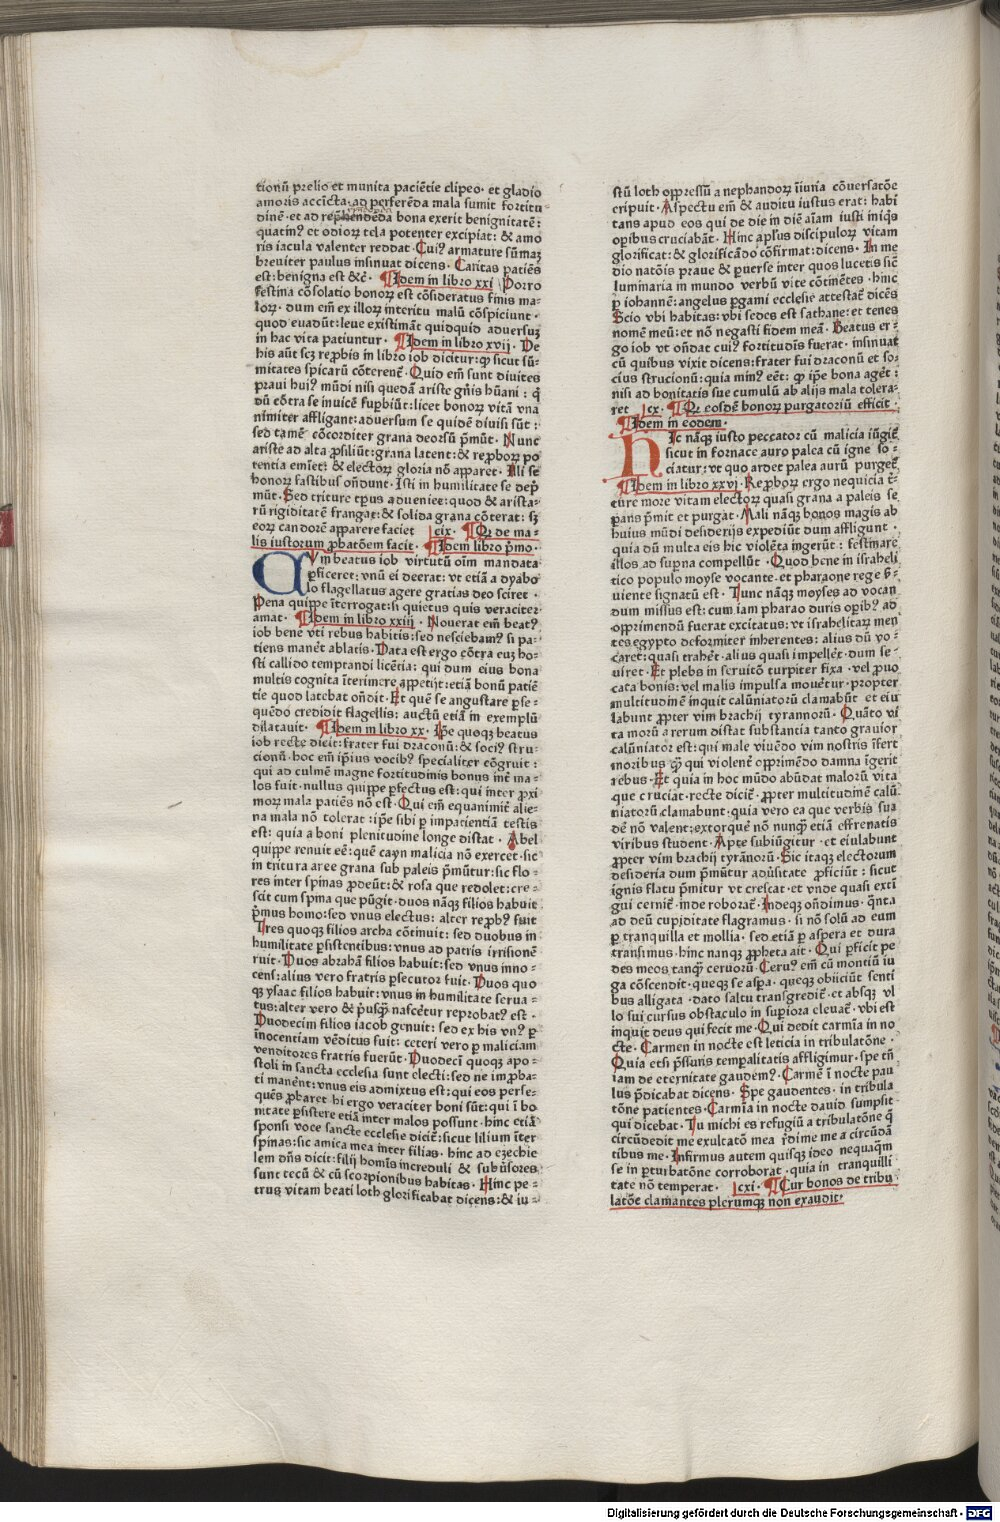 tionū prelio et munita paciētie clipeo· et gladio
amoris accīcta·ad perferēda mala sumit fortitu
dinē·et ad rep̄hendēda bona exerit benignitatē:
quatin⁹ et odioꝝ tela potenter excipiat: & amo
ris iacula valenter reddat·Cui⁹ armature sūmaȝ
breuiter paulus insinuat dicens· Caritas patiēs
est:benigna est &c̄· ¶Idem in libro xxi Porro
festina cōsolatio bonoꝝ est cōsideratus finis ma-
loꝝ· dum em̄ ex illoꝝ interitu malū cōspiciunt·
quod euadūt:leue existimāt quidquid aduersuȝ
in hac vita patiuntur· ¶Idem in libro xvij· De
his aūt scȝ rep̄bis in libro iob dicitur:ꝙ sicut sū-
mitates spicarū cōterent̄·Quid em̄ sunt diuites
praui hui⁹ mūdi nisi quedā ariste gn̄is hūani : q̄
dū cōtra se inuicē suꝑbiūt:licet bonoꝝ vitā vna
nimiter affligant:aduersum se quidē diuisi sūt :
sed tamē cōcorditer grana deorsū p̄mūt· Nunc
ariste ad alta ꝓsiliūt:grana latent:& rep̄boꝝ po
tentia emīet: & electoꝝ gloria nō apparet· Illi se
honoꝝ fastibus on̄dunt·Isti in humilitate se dep̄
mūt·Sed triture tp̄us adueniet:quod & arista-
rū rigiditatē frangat:& solida grana cōterat: sȝ
eoꝝ candorē apparere faciet cix· ¶Qꝛ de ma-
lis iustorum ꝓbatōem facit· ¶Idem libro p̄mo·
CVm beatus iob virtutū oīm mandata
ꝑficeret:vnū ei deerat: vt etiā a dyabo
lo flagellatus agere gratias deo sciret ·
Pena quippe īterrogat:si quietus quis veraciter
amat· ¶Idem in libro xxiij · Nouerat em̄ beat⁹
iob bene vti rebus habitis:sed nesciebam⁹ si pa-
tiens manēt ablatis·Data est ergo cōtra euȝ ho-
sti callido temptandi licētia: qui dum eius bona
multis cognita īterimere appetijt:etiā bonū patiē
tie quod latebat on̄dit·Et quē se angustare ꝑse-
quēdo credidit flagellis: auctū etiā in exemplū
dilatauit· ¶Idem in libro xx· Ip̄e quoqȝ beatus
iob recte dicit:frater fui draconū:& soci⁹ stru-
cionū·hoc em̄ ip̄ius vocib⁹ specialiter cōgruit :
qui ad culmē magne fortitudinis bonus int̄ ma-
los fuit·nullus quippe ꝑfectus est:qui inter ꝓxi
moꝝ mala patiēs nō est·Qui em̄ equanimit̄ alie-
na mala nō tolerat :ip̄e sibi ꝑ impatientiā testis
est: quia a boni plenitudine longe distat · Abel
quippe renuit eē:quē cayn malicia nō exercet·sic
in tritura aree grana sub paleis p̄mūtur:sic flo-
res inter spinas ꝓdeūt:& rosa que redolet:cre-
scit cum spina que pūgit·duos nāqȝ filios habuit
p̄mus homo:sed vnus electus: alter rep̄b⁹ fuit
Tres quoqȝ filios archa cōtinuit: sed duobus in
humilitate ꝑsistentibus:vnus ad patris irrisionē
ruit·Duos abrahā filios habuit:sed vnus inno-
cens:alius vero fratris ꝑsecutor fuit·Duos quo
qȝ ysaac filios habuit:vnus in humilitate serua-
tus:alter vero & p̄usqȝ nascētur reprobat⁹ est ·
Duodecim filios iacob genuit: sed ex his vn⁹ ꝑ
īnocentiam vēditus fuit: ceteri vero ꝑ maliciam
venditores fratris fuerūt·Duodecī quoqȝ apo-
stoli in sancta ecclesia sunt electi:sed ne imꝓba-
ti manēnt:vnus eis admixtus est:qui eos perse-
quēs ꝓbaret hi ergo veraciter boni sūt:qui ī bo
nitate ꝑsistere etiā inter malos possunt·hinc etiā
sponsi voce sancte ecclesie dicit̄:sicut lilium īter
spinas:sic amica mea inter filias· hinc ad ezechie
lem dn̄s dicit:filij homīs increduli & subūsores
sunt tecū & cū scorpionibus habitas·Hinc pe-
trus vitam beati loth glorificabat dicens:& iu-
stū loth oppressū a nephandoꝝ īiuria cōuersatōe
eripuit·Aspectu em̄ & auditu iustus erat: habi
tans apud eos qui de die in diē aīam iusti iniq̄s
oꝑibus cruciabāt·Hinc apl̄us discipuloꝝ vitam
glorificat:& glorificādo cōfirmat:dicens·In me
dio natōis praue & ꝑuerse inter quos lucetis sic̄
luminaria in mundo verbū vite cōtinētes ·hinc
ꝑ iohannē:angelus ꝑgami ecclesie attestat̄ dicēs
Scio vbi habitas:vbi sedes est sathane:et tenes
nomē meū:et nō negasti fidem meā·Beatus er-
go iob vt on̄dat cui⁹ fortitudīs fuerat· insinuat
cū quibus vixit dicens:frater fui draconū et so-
cius strucionū:quia min⁹ eēt: ꝙ ip̄e bona agēt :
nisi ad bonitatis sue cumulū ab alijs mala tolera-
ret cx· ¶Qꝛ eosdē bonoꝝ purgatoriū efficit·
¶Idem in eodem·
HIc nāqȝ iusto peccatoꝝ cū malicia iūgit̄
sicut in fornace auro palea cū igne so-
ciatur:vt quo ardet palea aurū purget̄
¶Idem in libro xxvj·Reꝓboꝝ ergo nequicia t̄-
ture more vitam electoꝝ quasi grana a paleis se
parans p̄mit et purgat·Mali nāqȝ bonos magis ab
huius mūdi desiderijs expediūt dum affligunt ·
quia dū multa eis hic violēta ingerūt : festinare
illos ad suꝑna compellūt ·Quod bene in israheli
tico populo moyse vocante·et pharaone rege s̄-
uiente signatū est· Tunc nāqȝ moyses ad vocan
dum missus est: cum iam pharao duris oꝑib⁹ ad
opprimendū fuerat excitatus: vt israhelitaꝝ men
tes egypto deformiter inherentes: alius dū vo-
caret:quasi trahēt·alius quasi impellēt·dum se-
uiret·Et plebs in seruitō turpiter fixa ·vel ꝓuo
cata bonis:vel malis impulsa mouētur·propter
multitudinē inquit calūniatorū clamabūt et eiu
labunt ꝓpter vim brachij tyrannorū· Quāto vi
ta morū a rerum distat substancia tanto grauior
calūniator est:qui male viuēdo vim nostris īfert
moribus qȝ qui violent̄ opprimēdo damna īgerit
rebus·Et quia in hoc mūdo abūdat malorū vita
que cruciat·recte dicit̄·ꝓpter multitudinē calū
niatorū clamabunt·quia vero ea que verbis sua
dē nō valent:extorquē nō nunqȝ etiā effrenatis
viribus student·Apte subiūgitur ·et eiulabunt
ꝓpter vim brachij tyrānorū·Sic itaqȝ electorum
desideria dum p̄mūtur aduīsitate ꝓficiūt : sicut
ignis flatu p̄mitur vt crescat·et vnde quasi extī
gui cernit̄·inde roborat̄·Indeqȝ on̄dimus·qn̄ta
ad deū cupiditate flagramus· si nō solū ad eum
ꝑ tranquilla et mollia· sed etiā ꝑ aspera et dura
transimus·hinc nanqȝ ꝓpheta ait· Qui ꝑficit pe
des meos tanqȝ ceruorū·Ceru⁹ em̄ cū montiū iu
ga cōscendit·queqȝ se asꝑa· queqȝ obiiciūt senti
bus alligata ·dato saltu transgredit̄·et absqȝ vl
lo sui cursus obstaculo in suꝑiora eleuat̄·vbi est
inquit deus qui fecit me·Qui dedit carmīa in no
cte· Carmen in nocte est leticia in tribulatōne ·
Quia etsi p̄ssuris tempalitatis affligimur·spe tn̄
iam de eternitate gaudem⁹·Carmē ī nocte pau
lus p̄dicabat dicens· Spe gaudentes· in tribula
tōne patientes·Carmīa in nocte dauid sumpsit
qui dicebat·Tu michi es refugiū a tribulatōne q̄
circūdedit me exultatō mea r̄dime me a circūdā
tibus me·Infirmus autem quisqȝ ideo nequaqȝ
se in ꝑturbatōne corroborat·quia in tranquilli
tate nō temperat· cxi· ¶Cur bonos de tribu
latōe clamantes plerumqȝ non exaudit·
Digitalisierung gefördert durch die Deutsche Forschungsgemeinschaft - DFG